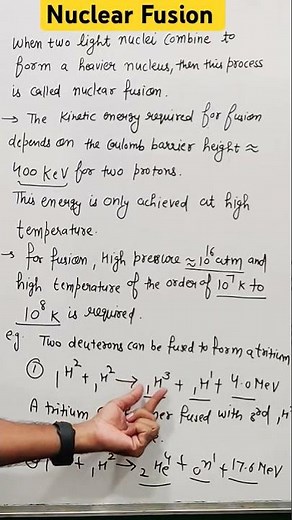 Nuclear Fusion
When two light nuclei combine to
form a heavier nucleus, then this process
is called nuclear fusion.
→ The Kinetic energy required for fusion
depends on the Coulomb barrier height ≈
400 KeV for two protons.
This energy is only achieved at high
temperature.
→ for fusion, High pressure ≈ 10¹⁶ atm and
high temperature of the order of 10⁷ K to
10⁸ K is required.
eg. Two deuterons can be fused to form a tritium
① ₁H² + ₁H² → ₁H³ + ₁H¹ + 4.0 MeV
A tritium fused with ₁H
₁H² → ₂He⁴ + ₀n¹ + 17.6 MeV